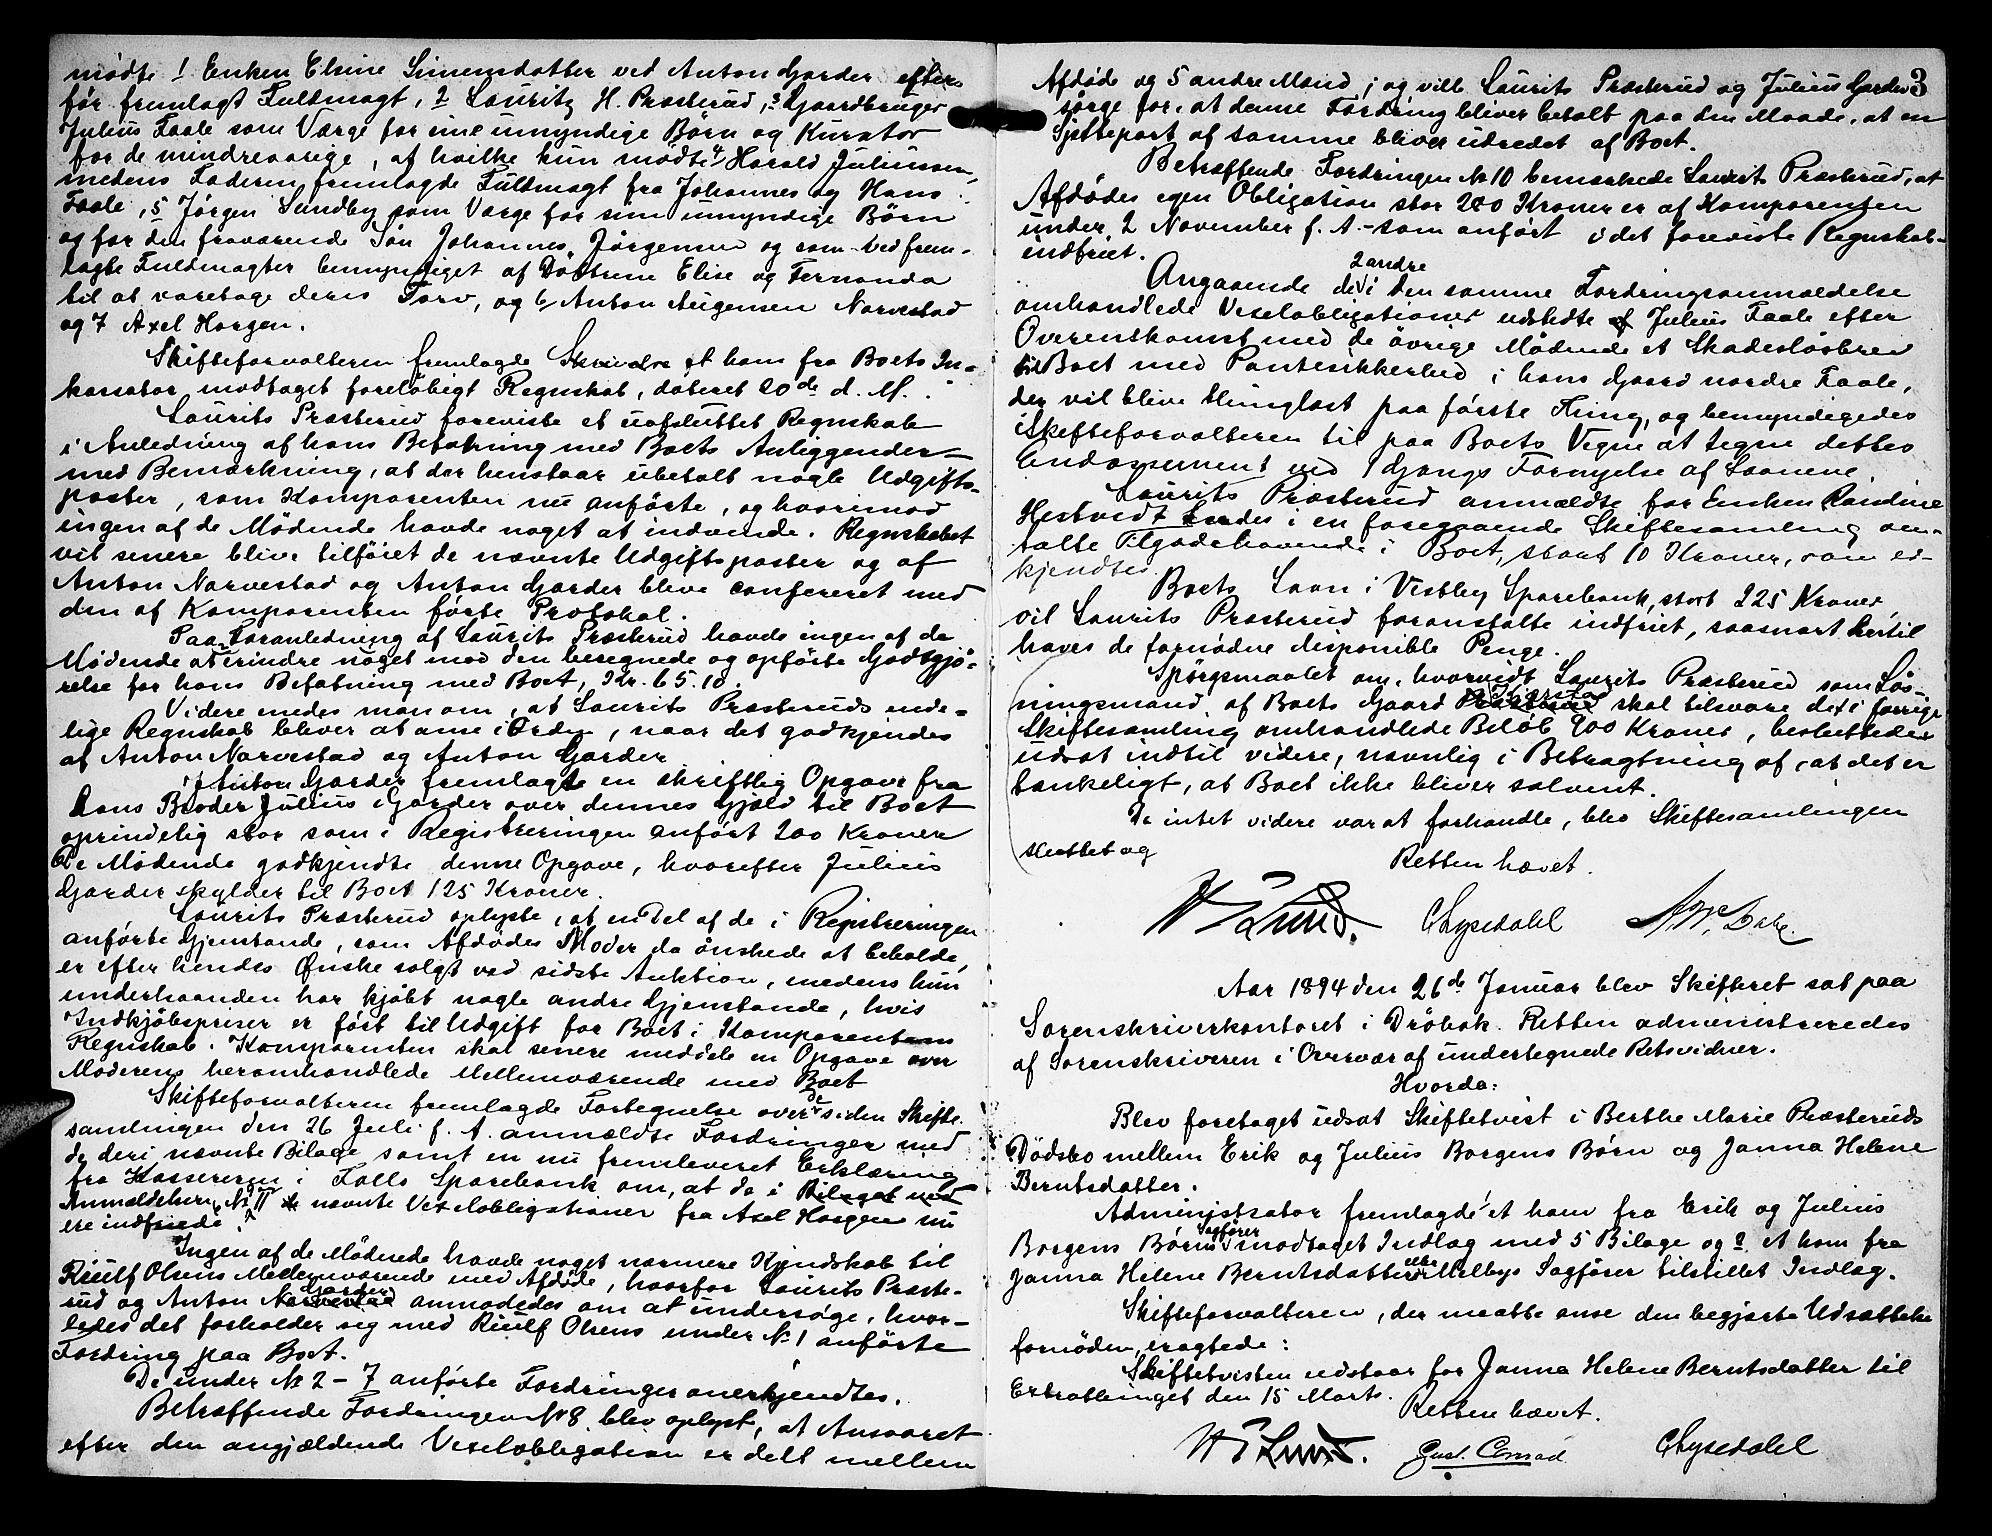 mødte 1 Enken Elsine Simensdatter ved Anton Garder efter
før fremlagt Fuldmagt, 2 Lauritz H. Præsterud, 3 Gaardbruger
Julius Faale som Værge for sine umyndige Børn og Kurator
for de mindreaarige, af hvilke kun mødte 4 Harald Juliussen,
medens Faderen fremlagde Fuldmagt fra Johannes og Hans
Faale, 5 Jørgen Sundby som Værge for sine umyndige Børn
og for den fraværende Søn Johannes Jørgensen og som ved frem-
lagte Fuldmagter bemyndiget af Døttrene Elise og Fernanda
til at varetage deres Tarv, og 6 Anton Augensen Narvestad
og 7 Axel Horgen.
Skifteforvalteren fremlagde et ham fra Boets In-
kassator modtaget foreløbigt Regnskab, dateret 20de d. M.
Laurits Præsterud foreviste et uafsluttet Regnskab
i Anledning af hans Befatning med Boets Anliggender
med Bemærkning, at der henstaar ubetalt nogle Udgifts-
poster, som Komparenten nu anførte, og hvorimod
ingen af de Mødende havde noget at indvende. Regnskabet
vil senere blive tilføiet de nævnte Udgiftsposter og af
Anton Narvestad og Anton Garder blive confereret med
den af Komparenten førte Protokol.
Paa Foranledning af Laurits Præsterud havde ingen af de
Mødende at erindre noget mod den beregnede og opførte Godtgjø-
relse for hans Befatning med Boet, Kr. 65.10.
Videre enedes man om, at Laurits Præsteruds ende-
lige Regnskab bliver at anse i Orden, naar det godkjendes
af Anton Narvestad og Anton Garder
Anton Garder fremlagde en skriftlig Opgave fra
hans Broder Julius Garder over dennes Gjæld til Boet
oprindelig stor som i Registreringen anført 200 Kroner
De Mødende godkjendte denne Opgave, hvorefter Julius
Garder skylder til Boet 125 Kroner.
Laurits Præsterud oplyste, at en Del af de i Registreringen
anførte Gjenstande, som Afdødes Moder da ønskede at beholde,
er efter hendes Ønske solgt ved sidste Auktion, medens hun
underhaanden har kjøbt nogle andre Gjenstande, hvis
Indkjøbspriser er ført til Udgift for Boet i Komparentens
Regnskab. Komparenten skal senere meddele en Opgave over
Moderens heromhandlede Mellemværende med Boet
Skifteforvalteren fremlagde Fortegnelse over de siden Skifte-
samlingen den 26 Juli f. A. anmældte Fordringer med
de deri nævnte Bilage samt en nu fremleveret Erklæring
fra Kassereren i Follo Sparebank om, at de i Bilaget ved
Anmældelsen No II nævnte Vexelobligationer fra Axel Horgen nu
ere indfriede.
Ingen af de Mødende havde noget nærmere Kjendskab til
Riulf Olsens Mellemværende med Afdøde, hvorfor Laurits Præste-
rud og Anton Garder anmodedes om at undersøge, hvor-
ledes det forholder sig med Riulf Olsens under No 1 anførte
Fordring paa Boet.
De under No 2 - 7 anførte Fordringer anerkjendtes.
Betræffende Fordringen No 8 blev oplyst, at Ansvaret
efter den angjældende Vexelobligation er delt mellem
3
Afdøde og 5 andre Mænd; og vil Laurits Præsterud og Julius Garder
sørge for, at denne Fordring bliver betalt paa den Maade, at en
Sjettepart af samme bliver udredet af Boet.
Betræffende Fordringen No 10 bemærkede Laurits Præsterud, at
Afdødes egen Obligation stor 200 Kroner er af Komparenten
under 2 November f. A. - som anført i det foreviste Regnskab -
indfriet.
Angaaende de 2 andre i den samme Fordringsanmældelse
omhandlede Vexelobligationer udstedte Julius Faale efter
Overenskomst med de øvrige Mødende et Skadesløsbrev
til Boet med Pantesikkerhed i hans Gaard nordre Faale,
der vil blive thinglæst paa første Thing, og bemyndigedes
Skifteforvalteren til paa Boets Vegne at tegne dettes
Endossement ved 1 Gangs Fornyelse af Laanene
Laurits Præsterud anmældte for Enken Randine
Hestvedt i en foregaaende Skiftesamling om-
talte Tilgodehavende i Boet, stort 10 Kroner, som er-
kjendtes.
Boets Laan i Vestby Sparebank, stort 225 Kroner,
vil Laurits Præsterud foranstalte indfriet, saasnart hertil
haves de fornødne disponible Penge.
Spørgsmaalet om, hvorvidt Laurits Præsterud som Løs-
ningsmand af Boets Gaard skal tilsvare det i forrige
Skiftesamling omhandlede Beløb 900 Kroner, besluttedes
udsat indtil videre, navnlig i Betragtning af, at det er
tænkeligt, at Boet ikke bliver solvent.
Da intet videre var at forhandle, blev Skiftesamlingen
sluttet og
Retten hævet.
Lund. CLysedahl
Aar 1894 den 26de Januar blev Skifteret sat paa
Sorenskriverkontoret i Drøbak. Retten administreredes
af Sorenskriveren i Overvær af undertegnede Retsvidner.
Hvorda:
Blev foretaget udsat Skiftetvist i Berthe Marie Præsteruds
Dødsbo mellem Erik og Julius Borgens Børn og Janna Helene
Berntsdatter.
Administrator fremlagde 1 et ham fra Erik og Julius
Borgens Børns Sagfører modtaget Indlæg med 5 Bilage og 2 et ham fra
Janna Helene Berntsdatter Melbys Sagfører tilstillet Indlæg.
Skifteforvalteren, der maatte anse den begjærte Udsættelse
fornøden, eragtede:
Skiftetvisten udstaar for Janna Helene Berntsdatter til
Extrathinget den 15 Marts.
Retten hævet.
Lund. Gust. Conrad CLysedahl